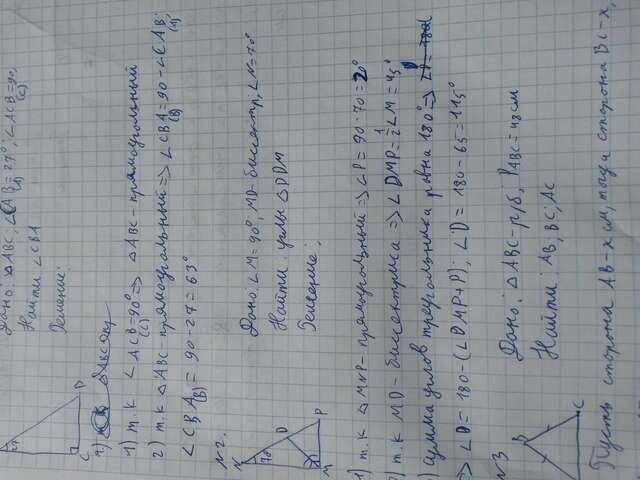 Дано: △ABC; ∠CAB=27°; ∠ACB=90°
(A) (C)
Найти ∠CBA
Решение:
27
C
1) т.к ∠ACB=90° => △ABC - прямоугольный
(C)
2) т.к △ABC прямоугольный => ∠CBA = 90 - ∠CAB;
(B) (A)
∠CBA = 90 - 27 = 63°
(B)
N2.
Дано: ∠M=90°, MD-биссектр, ∠N=70°
Найти: углы △PDM
Решение:
N
70°
D
P
M
1) т.к △MNP - прямоугольный => ∠P = 90-70=20°
2) т.к MD - биссектриса => ∠DMP = 1/2 ∠M = 45°
3) Сумма углов треугольника равна 180° =>
=> ∠D = 180-(∠DMP+P); ∠D = 180-65=115°
N3
B
C
Дано: △ABC - р/б; P ABC = 48 см
Найти: AB, BC, AC
Пусть сторона AB - x см, тогда сторона BC - x,